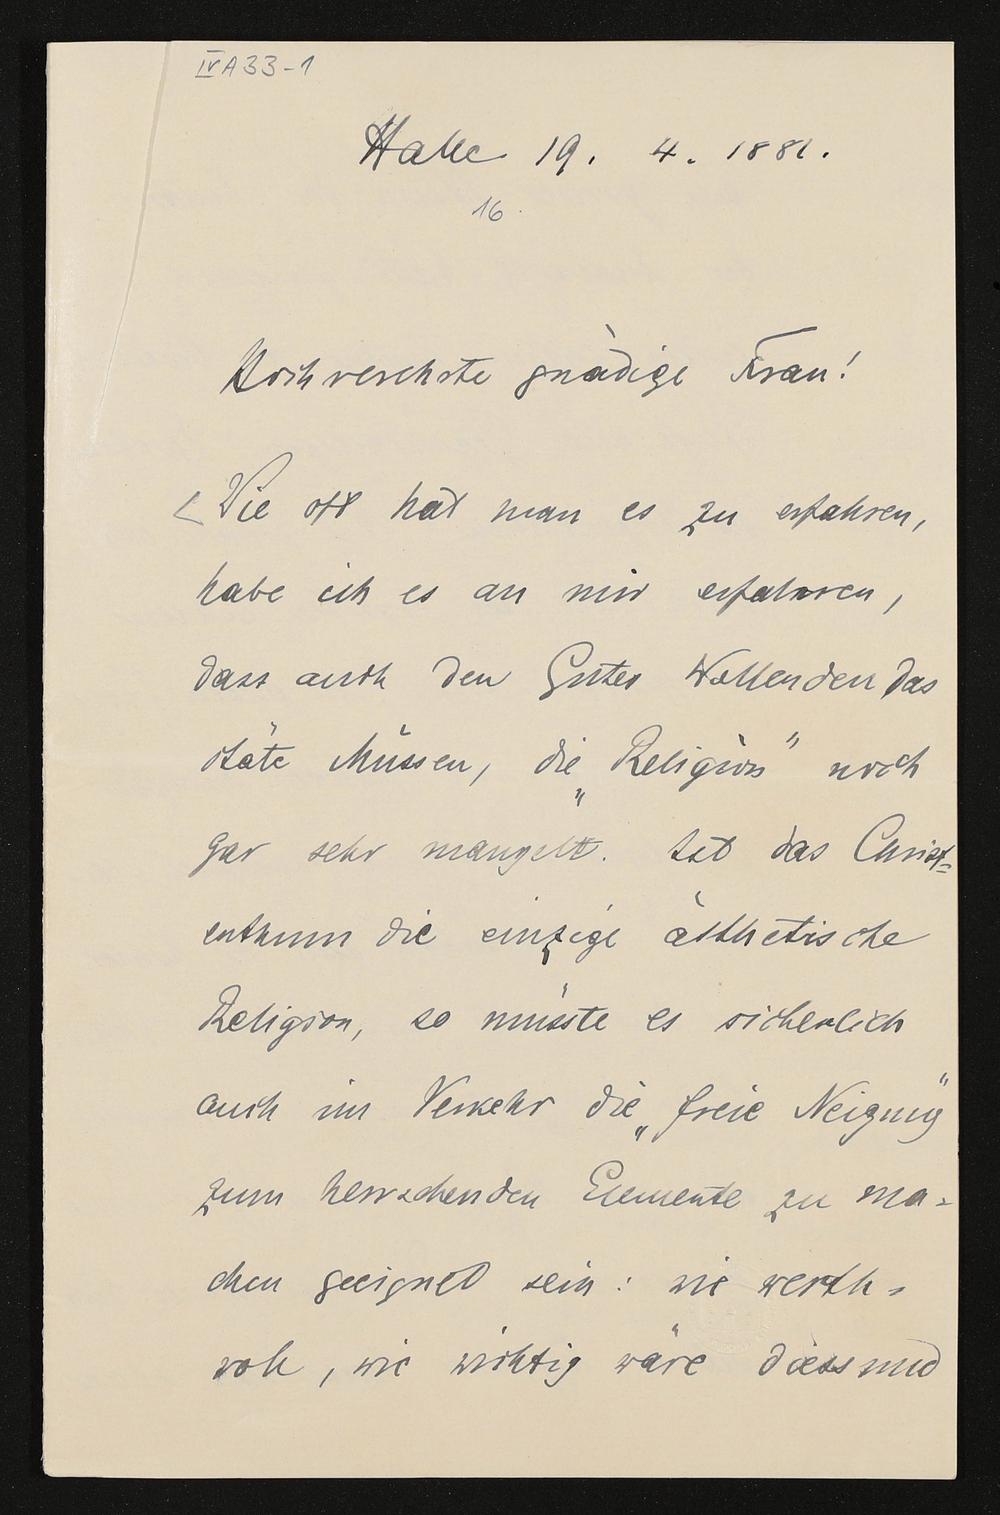 IV A 33-1
Halle 19. 4. 1881.
16.
Hochverehrte gnädige Frau!
Wie oft hat man es zu erfahren,
habe ich es an mir erfahren,
dass auch den Gutes Wollenden das
stäte Müssen, die „Religion" noch
gar sehr mangelt. Ist das Christ=
enthum die einzige ästhetische
Religion, so müsste es sicherlich
auch im Verkehr die „freie Neigung"
zum herrschenden Elemente zu ma-
chen geeignet sein: wie werth-
voll, wie wichtig wäre diess und